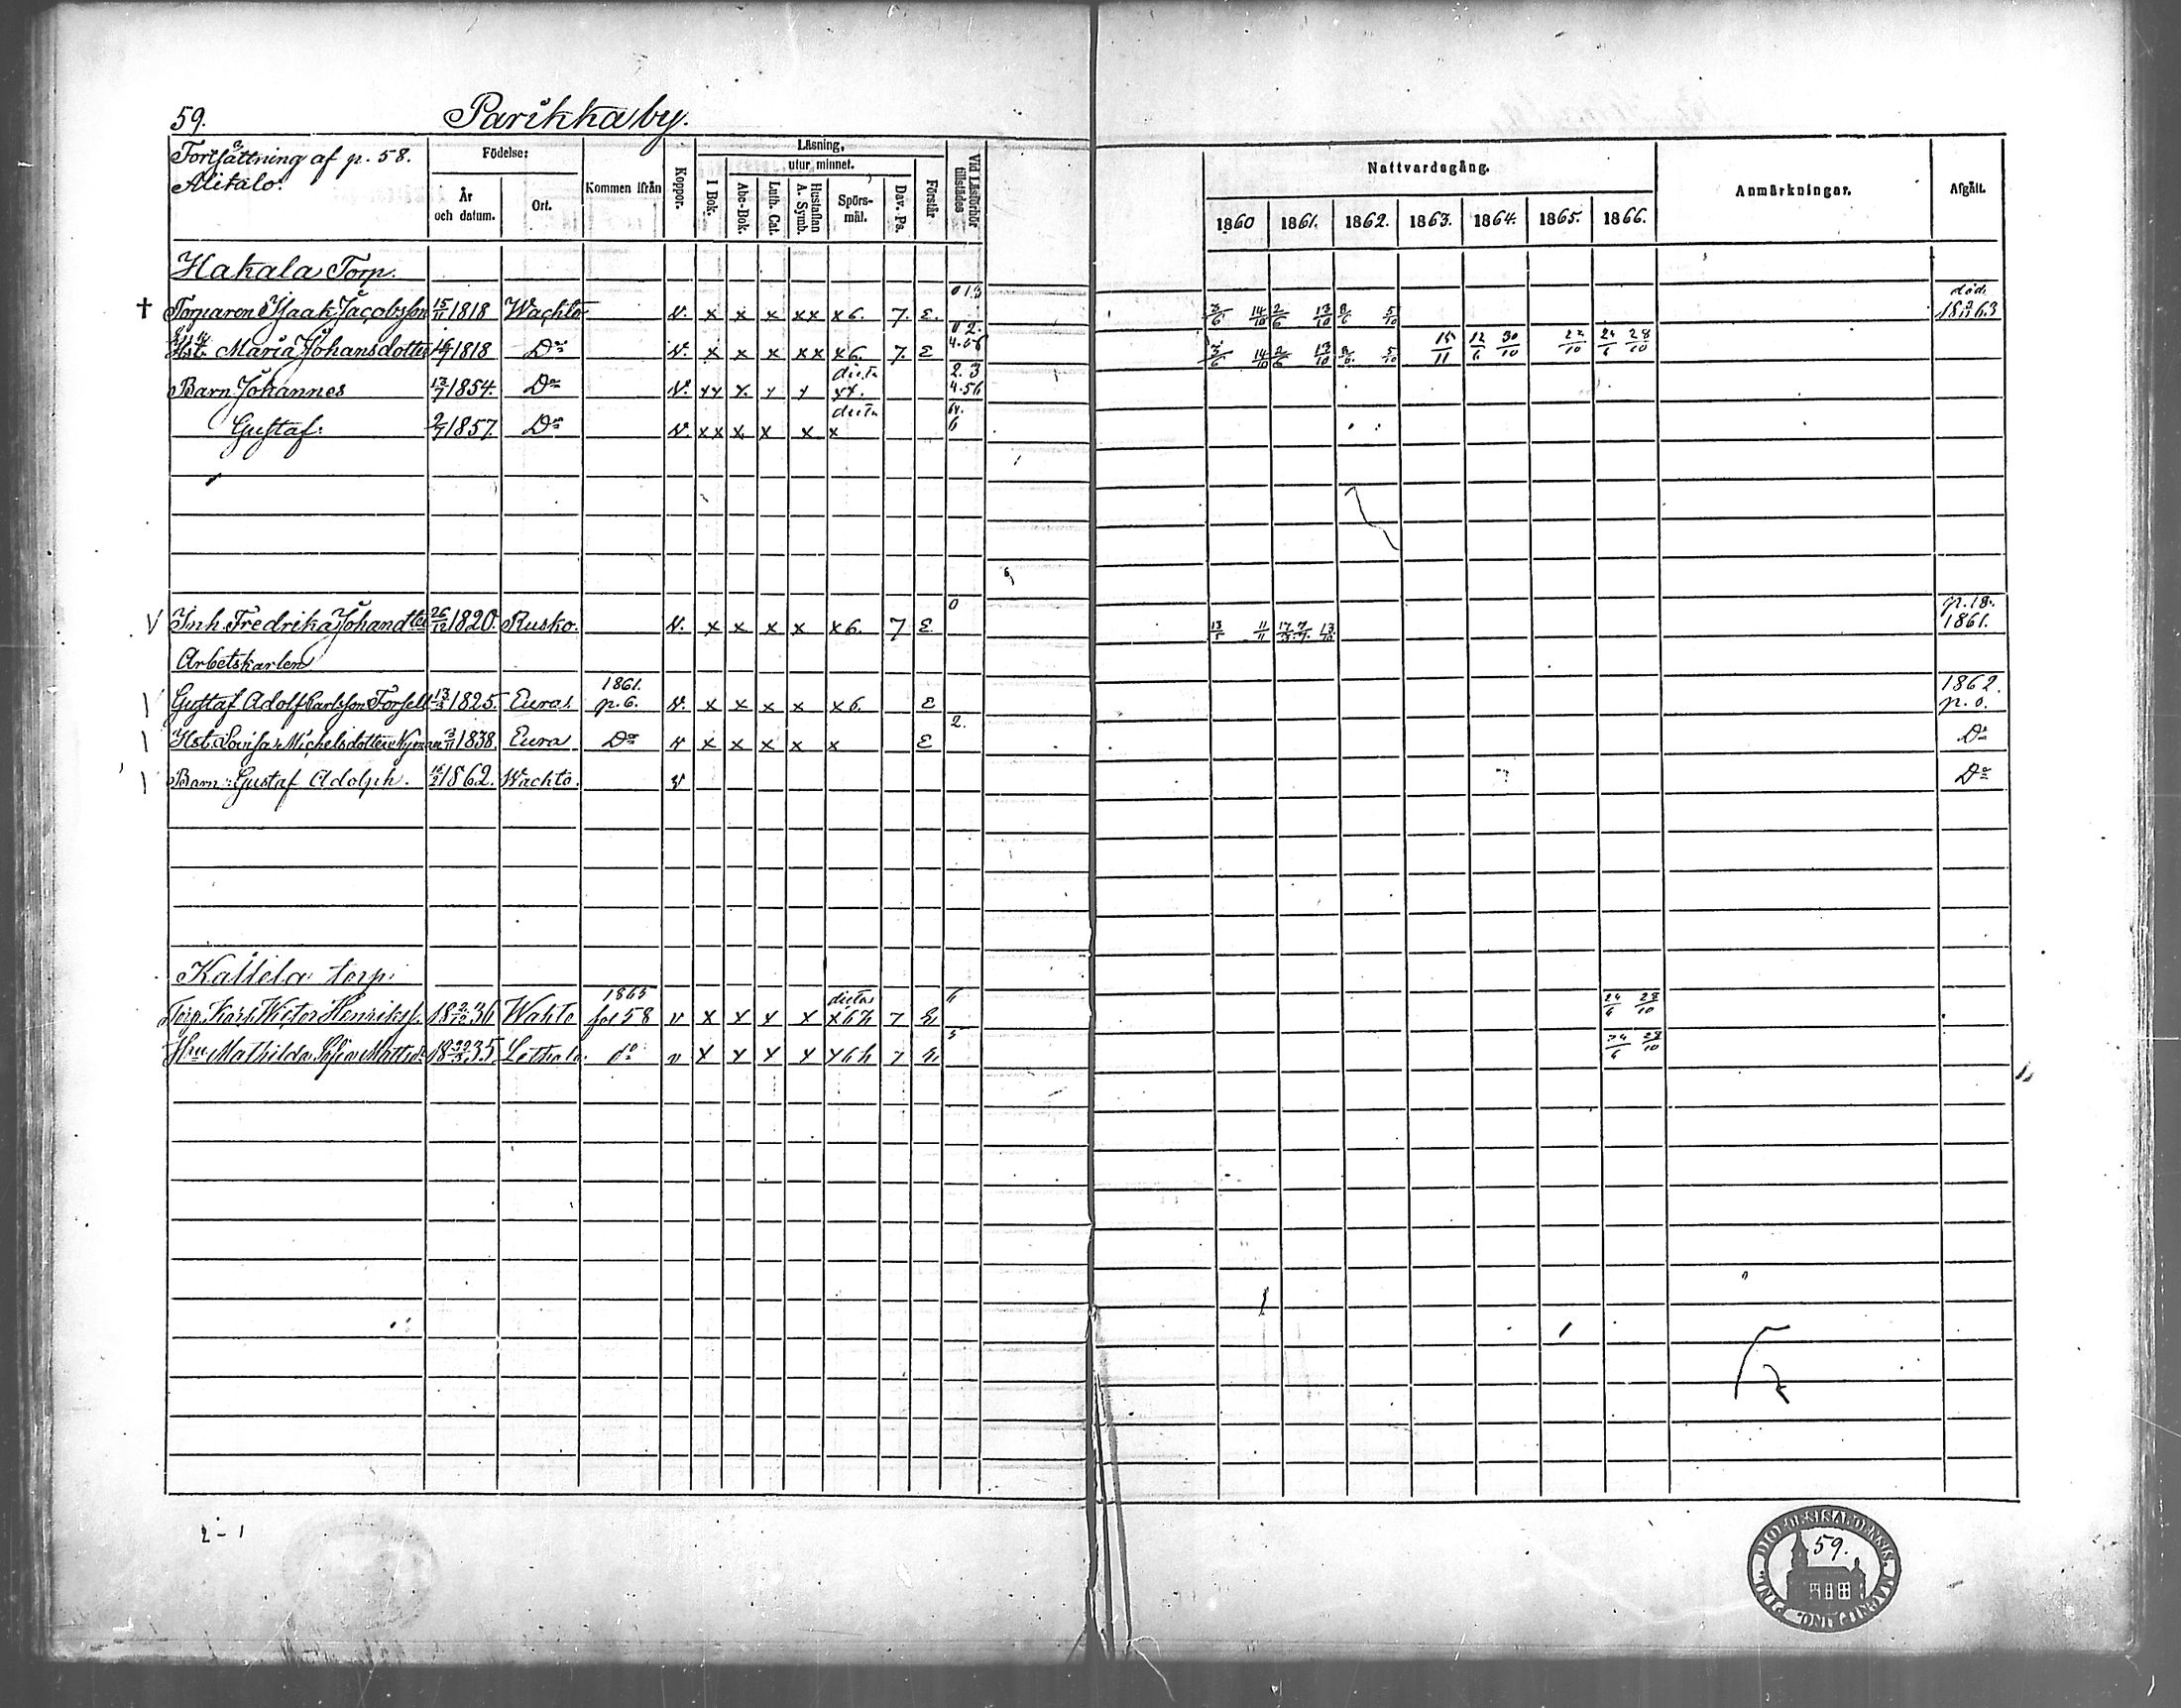 59. Parikka by.
Fortsättning af p. 58.
Alitalo.
Födelse:
År och datum.
Ort.
Kommen ifrån
Koppor.
Läsning,
I Bok.
utur minnet.
Abc-Bok.
Luth. Cat.
Hustaflan A. Symb.
Spörs-mål.
Dav. Ps.
Förstår
Vid Läsförhör tillstädes
Nattvardsgång.
1860 1861. 1862. 1863. 1864. 1865. 1866.
Anmärkningar.
Afgått.
Hakala Torp.
† Torparen Isaak Jacobsson 15/11 1818 Wachto V. x x x xx x6. 7. E. 013 3/6 14/10 2/6 13/10 8/6 5/10 död 1863
Hst. Maria Johansdotter 1818 Do V. x x x xx x6. 7. E 02. 3/6 14/10 2/6 13/10 5/10 15/11 12/6 30/10 22/10 24/6 28/10
Barn Johannes 13/7 1854. Do V. xx x. x x dicta xx. 2.3 4.56
Gustaf. 2/7 1857. Do V. xx x x x dicta x 64. 6
V Inh. Fredrika Johandter 26/12 1820. Rusko. V. x x x x x6. 7 E 0 13/5 11/11 p. 18. 1861.
Arbetskarlen
Gustaf Adolf Carlsson Forsell 13/3 1825. Eura. 1861. p. 6. V. x x x x x6. E 1862. p. o.
Hst. Lovisa Michelsdotter Nyman 3/11 1838. Eura Do V x x x x x E 2. Do
Barn: Gustaf Adolph. 1862. Wachto. V Do
Kallela torp.
Torp. Karl Wictor Henrikss. 18 2/12 36 Wahto 1865 fol 58 v x x x x dictas x6h 7 E 6 24/6 28/10
Hu Mathilda Sofia Mattsd. 1835. Lethala do v x x x x x6h 7 E 5 24/6 28/10
2-1
59.